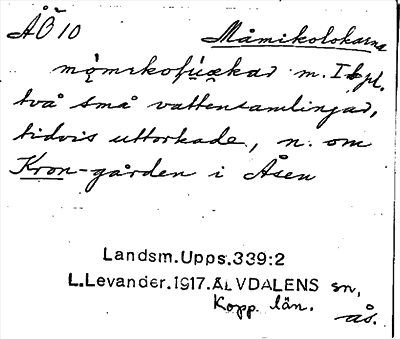 ÅÖ 10
Måmikolokarna
m. I b pl.
två små vattensamlingar,
tidvis uttorkade, n. om
Kron-gården i Åsen
Landsm.Upps.339:2
L.Levander.1917.ÄLVDALENS sn,
Kopp. län.
ås.